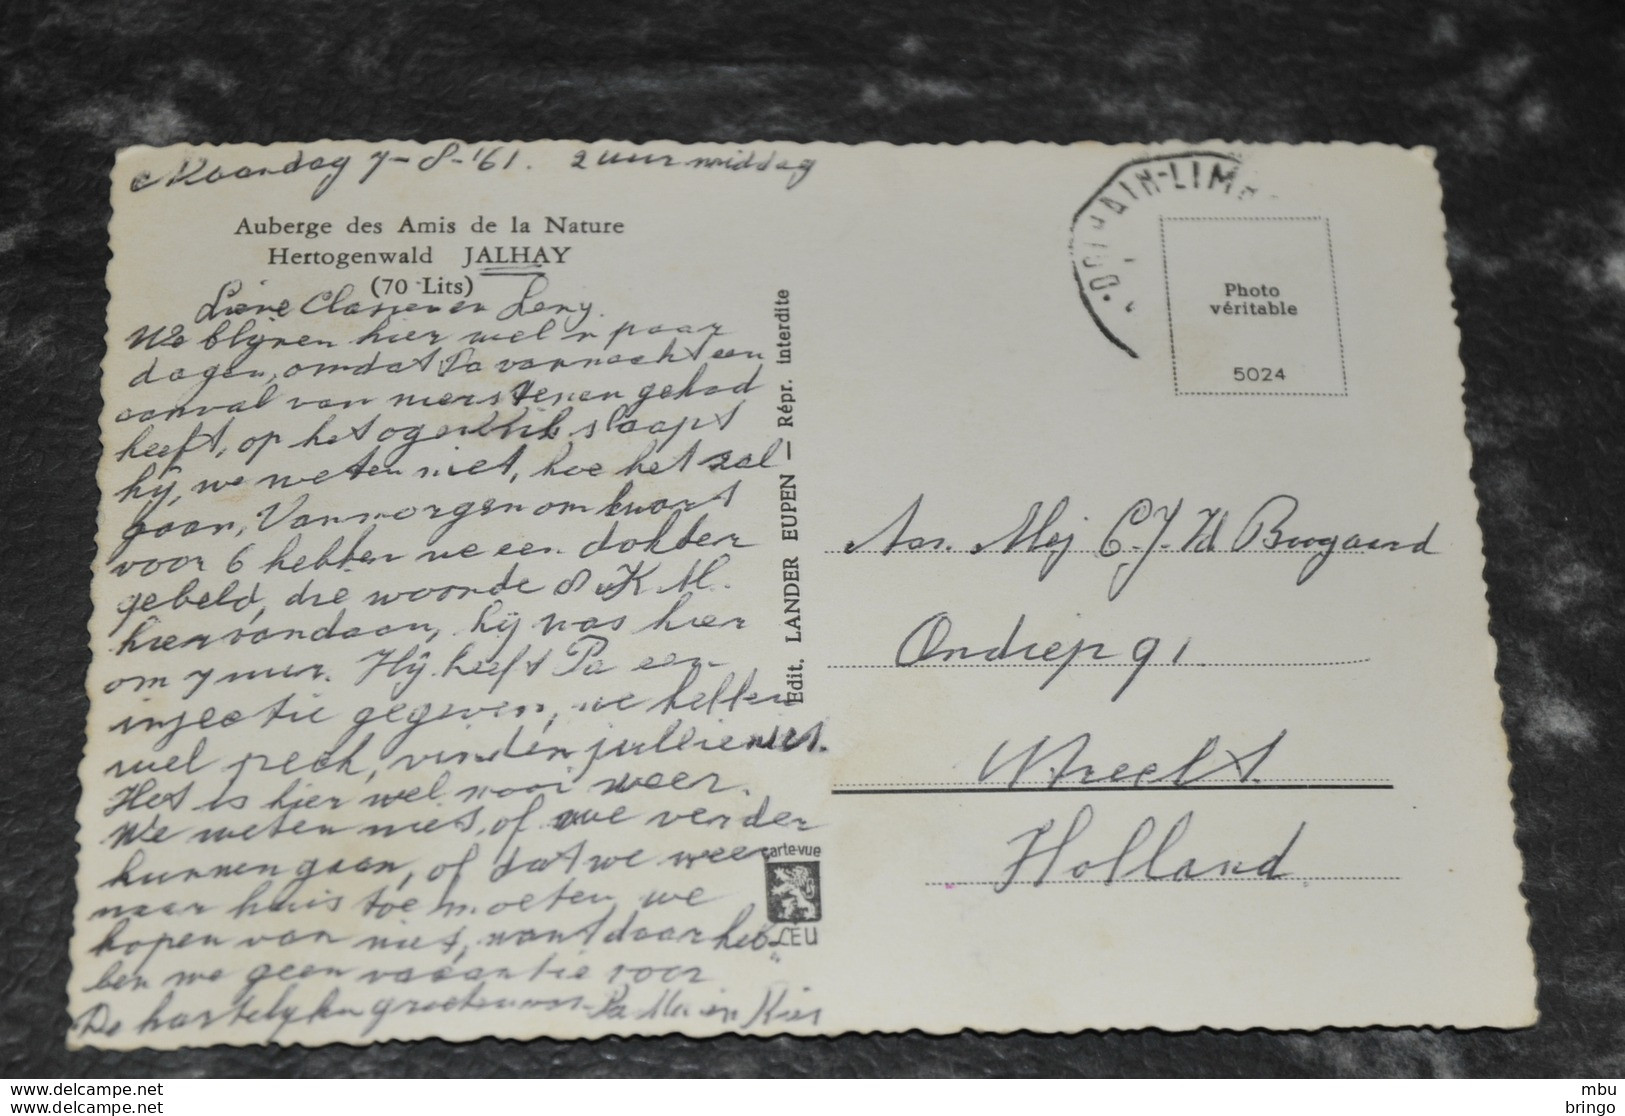 Maandag 7-8-'61. 2 uur middag
Auberge des Amis de la Nature
Hertogenwald JALHAY
(70 Lits)
Lieve en Leny.
We blijven hier wel 'n paar
dagen, omdat Pa vannacht een
aanval van nierstenen gehad
heeft, op het ogenblik slaapt
hij, we weten niet, hoe het zal
gaan, Vanmorgen om kwart
voor 6 hebben we een dokter
gebeld, die woonde 8 K.M.
hiervandaan, hij was hier
om 7 uur. Hij heeft Pa een
injectie gegeven, we hebben
wel pech, vinden jullie niet.
Het is hier wel mooi weer.
We weten niet, of we verder
kunnen gaan, of dat we weer
naar huis toe moeten, we
hopen van niet, want daar heb-
ben we geen vacantie voor
De hartelijke groeten van Pa Ma en
Edit. LANDER EUPEN — Répr. interdite
carte-vue
LEU
DOLHAIN-LIMB
Photo
véritable
5024
Aan Mej C.J.W Boogaard
Ondiep 91
Utrecht
Holland
mbu
bringo
mbu
bringo